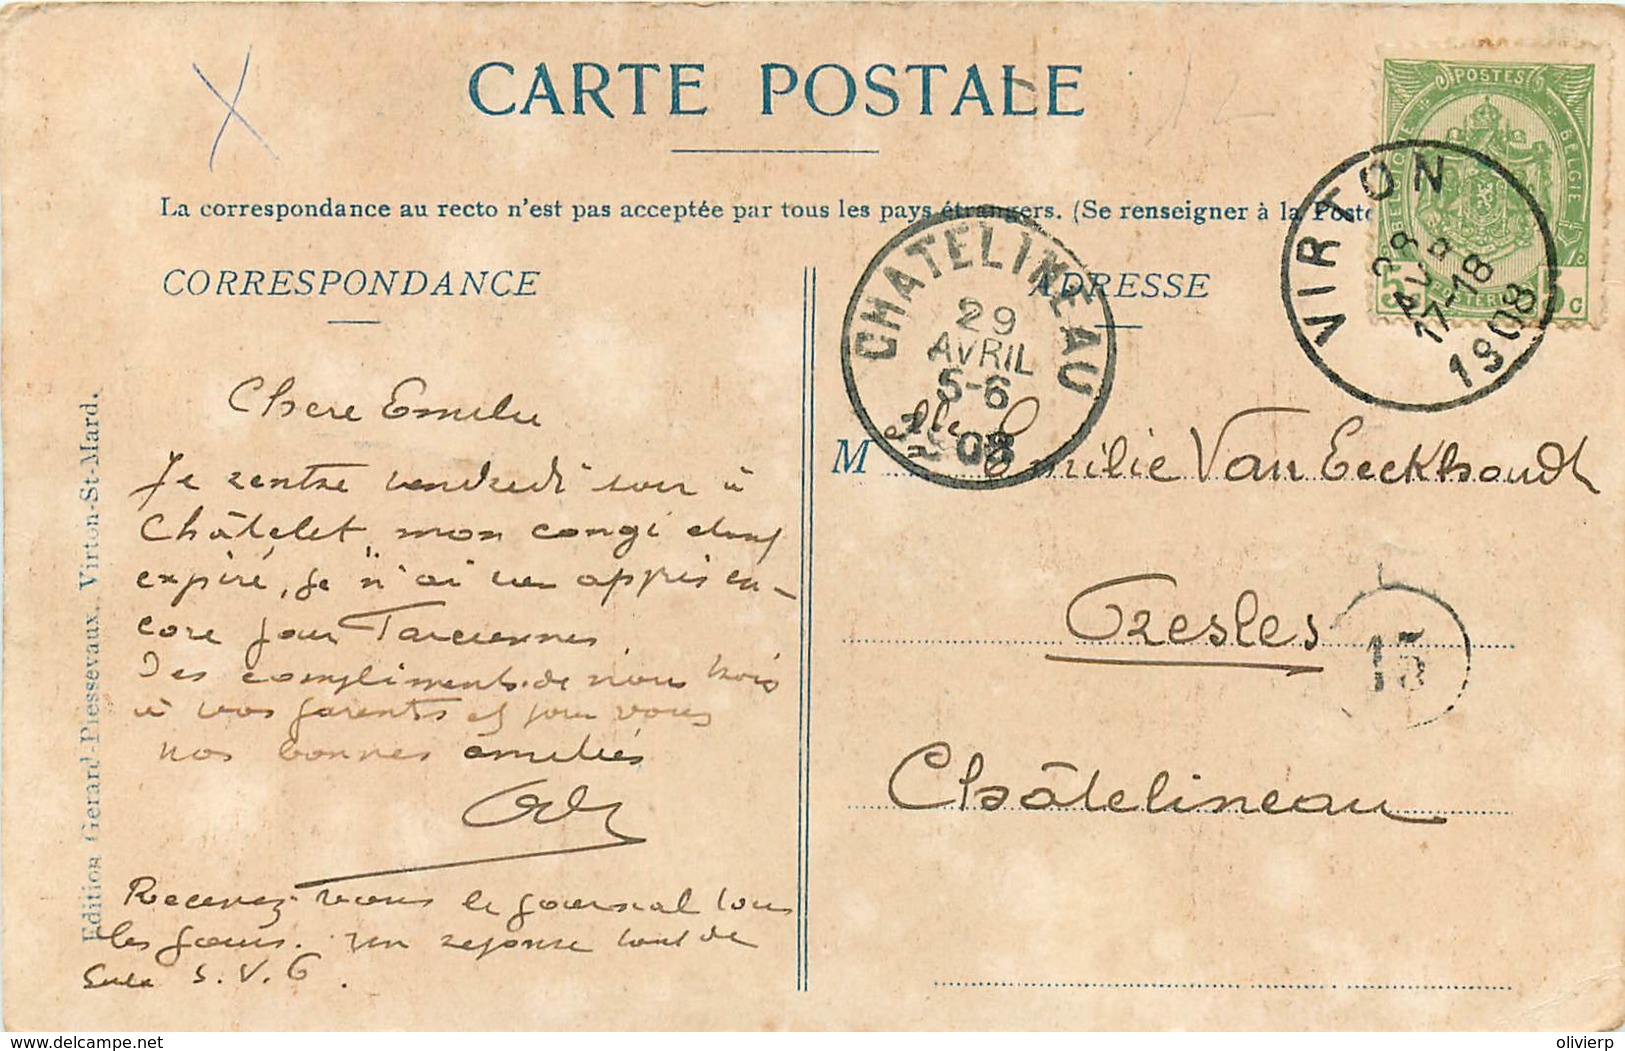 CARTE POSTALE
La correspondance au recto n'est pas acceptée par tous les pays étrangers. (Se renseigner à la Poste
CORRESPONDANCE
ADRESSE
POSTES
BELGIQUE
BELGIE
VIRTON
28
AVR
17-18
1908
CHATELINEAU
29
AVRIL
5-6
1908
Edition Gerard-Plessevaux, Virton-St-Mard.
Chere Emilie
Je rentre vendredi soir à
Châtelet, mon congé
expiré, je n'ai appris en-
core pour Tarciennes
Des compliments de nous trois
à vos parents et pour vous
nos bonnes amitiés
Recevez-vous le journal tous
les jours. un reponse tout de
suite S.V.P.
M lle Emilie Van Eeckhoudt
Presles
15
Châtelineau
olivierp